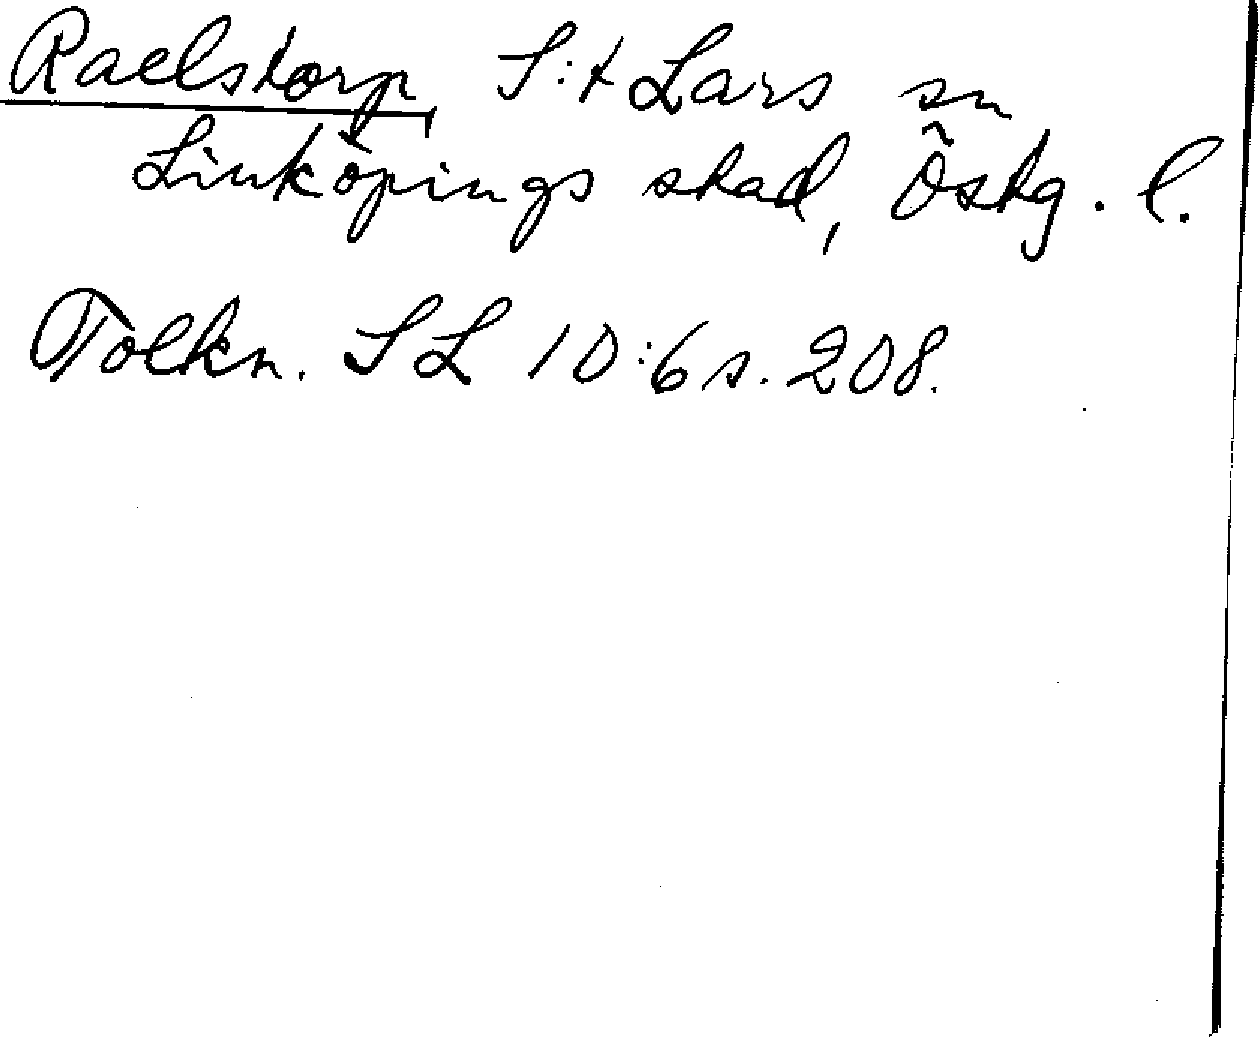 Raelstorp, S:t Lars sn
Linköpings stad, Östg. l.
Tolkn. SL 10:6 s. 208.